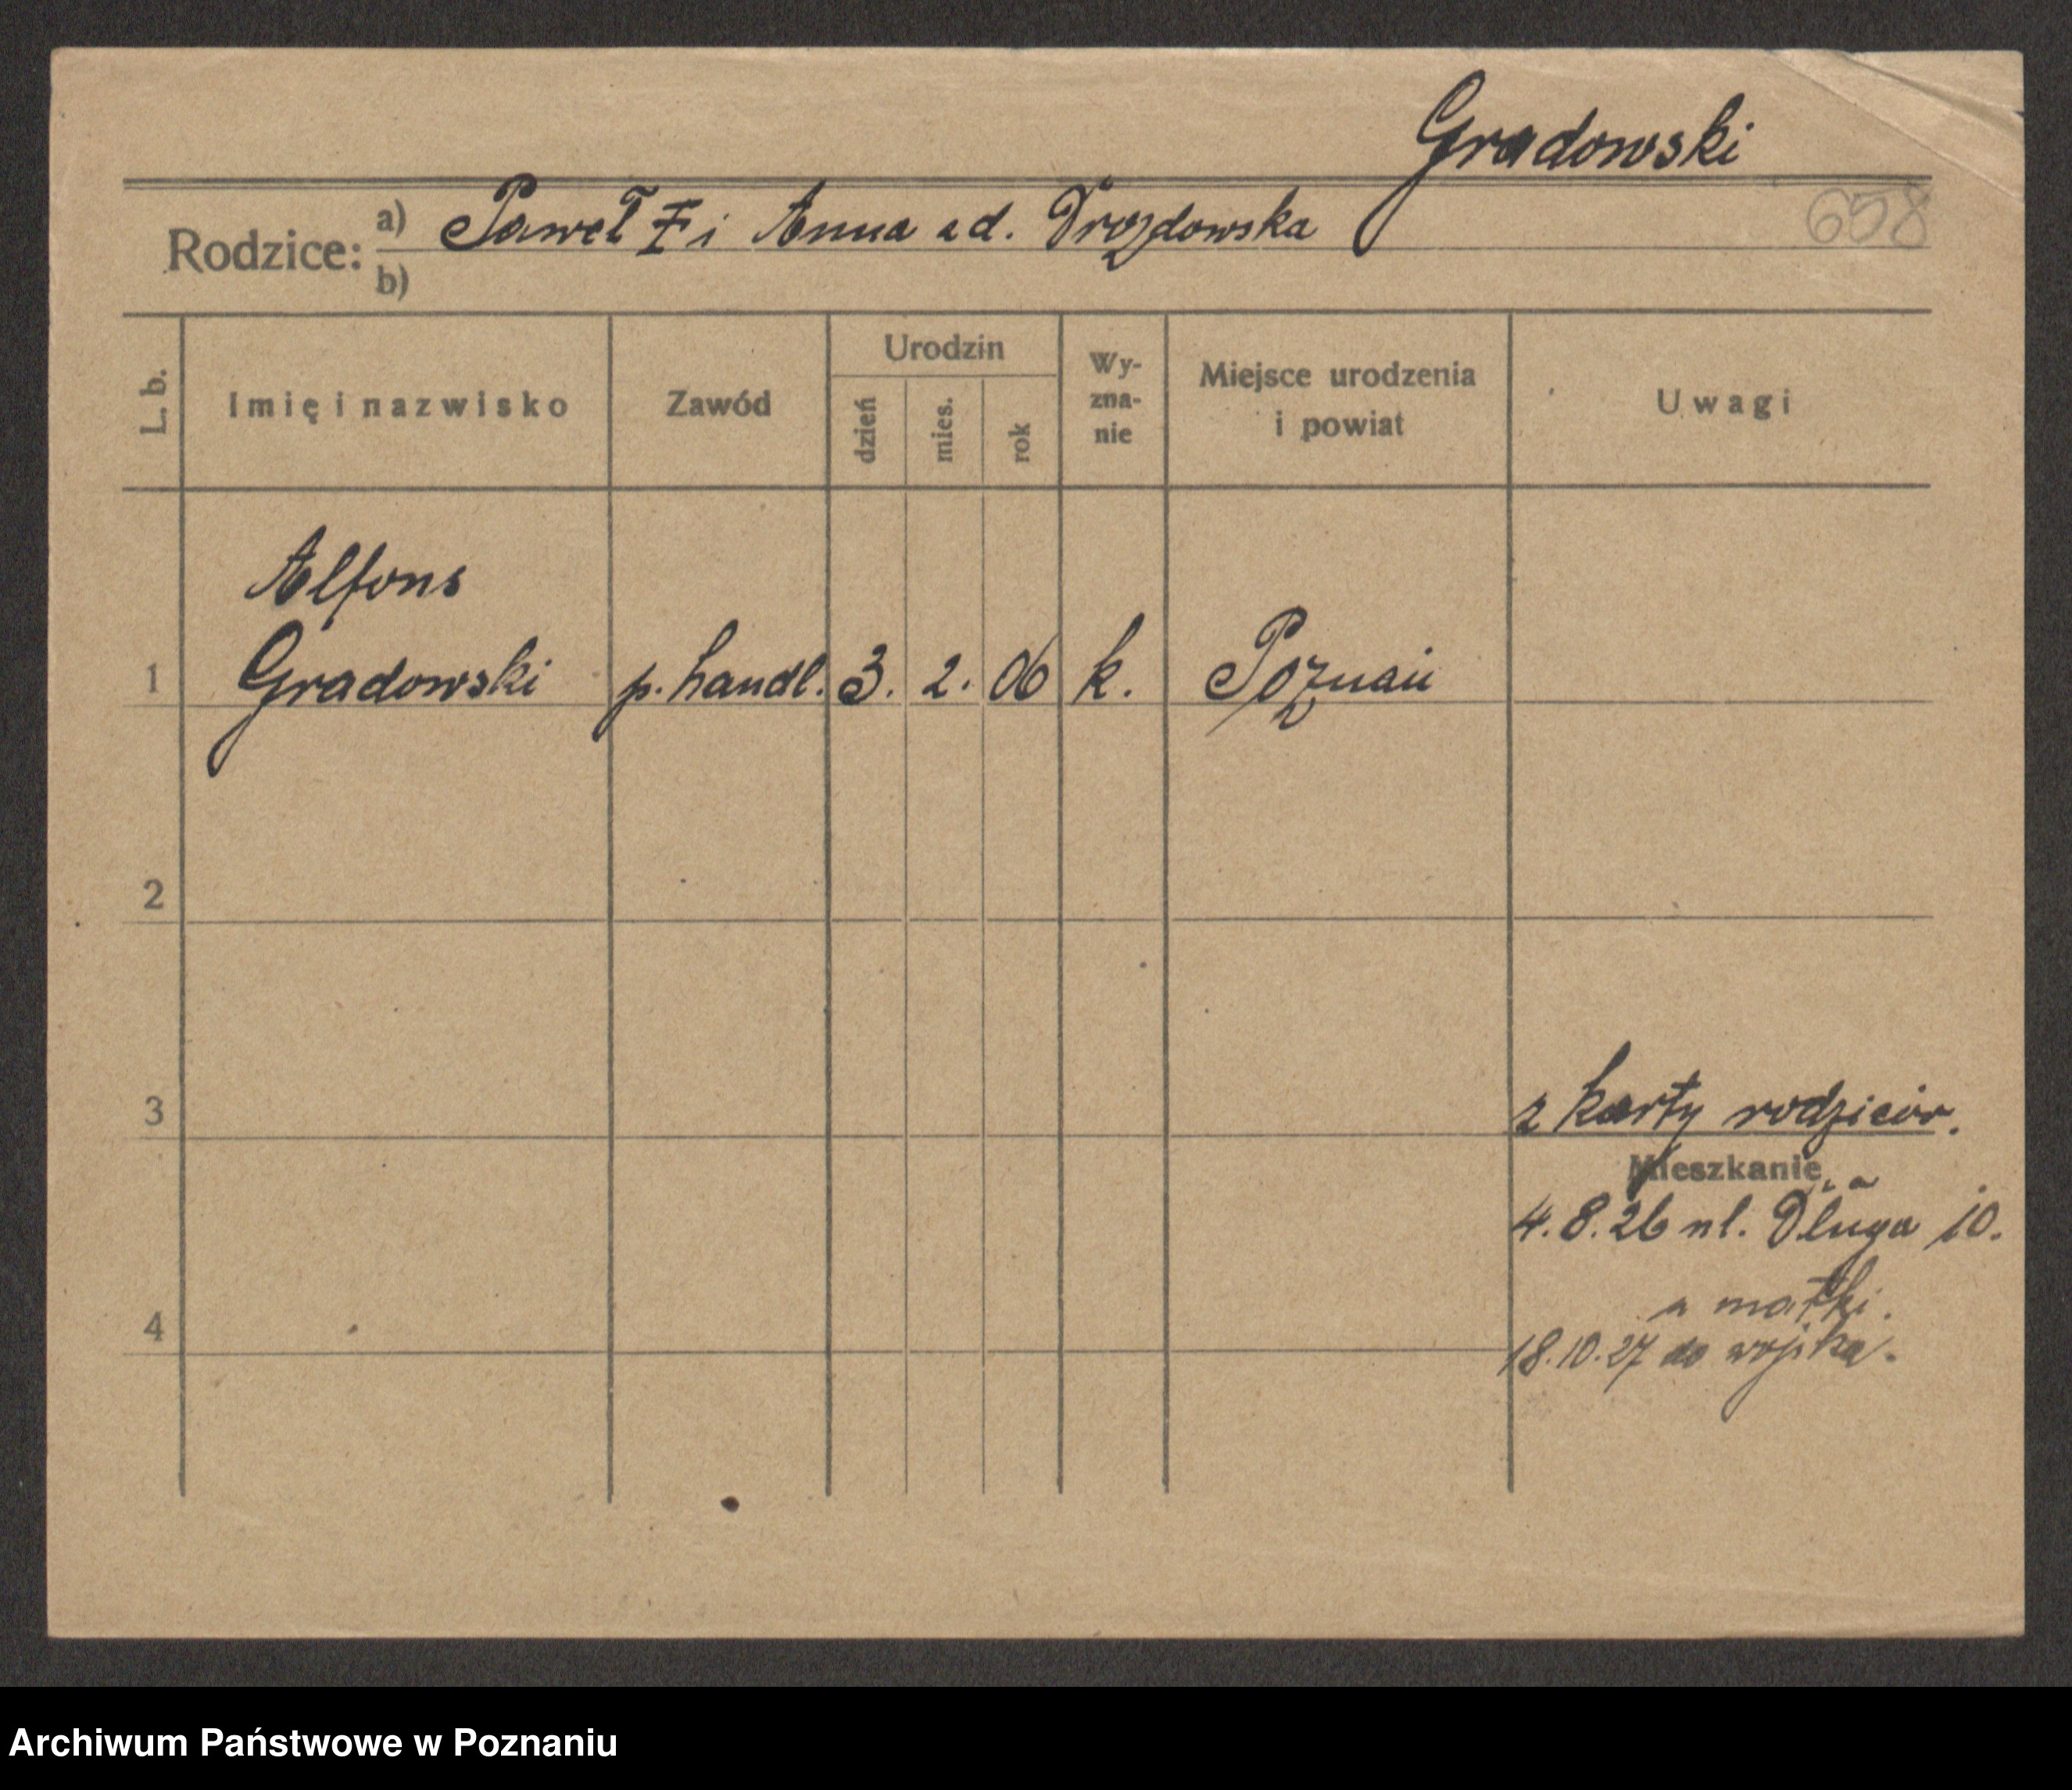 Gradowski
658
Rodzice: a) Paweł i Anna zd. Drozdowska
b)
L. b. Imię i nazwisko Zawód Urodzin dzień mies. rok Wy-zna-nie Miejsce urodzenia i powiat Uwagi
Alfons
1 Gradowski p. handl. 3. 2. 06 k. Poznań
2
3 z karty rodziców.
Mieszkanie
4.8.26 ul. Długa 10.
u matki.
4
18.10.27 do wojska.
Archiwum Państwowe w Poznaniu